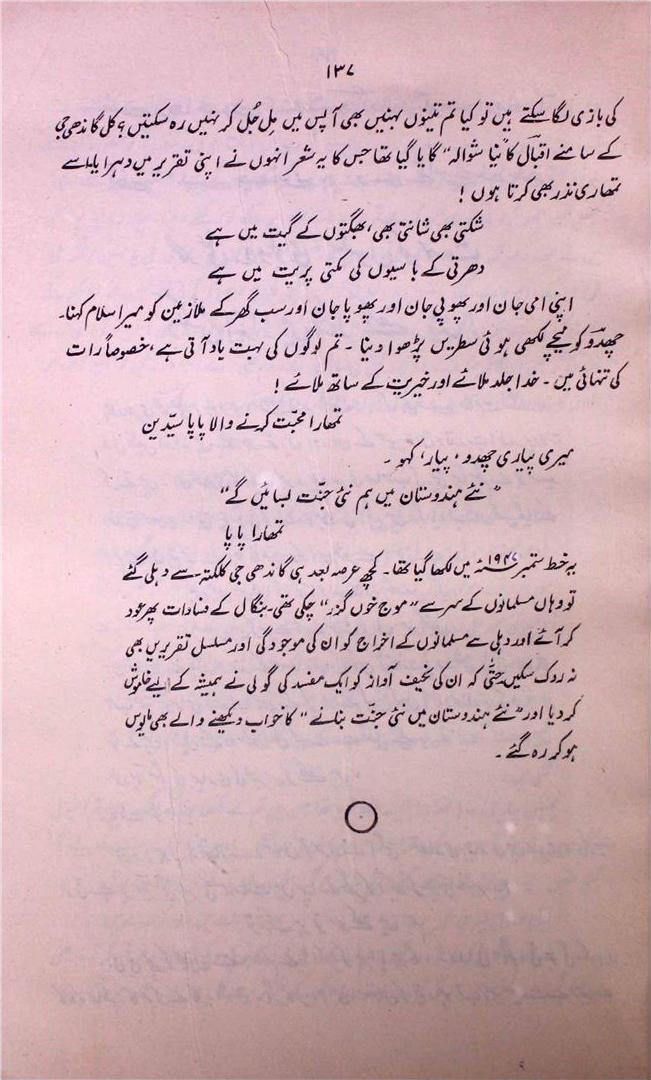 ۱۳۷
کی بازی لگا سکتے ہیں تو کیا تم تینوں بہنیں بھی آپس میں مِل جُل کر نہیں رہ سکتیں؟ کل گاندھی جی
کے سامنے اقبالؔ کا نیا شوالہ" گایا گیا تھا جس کا یہ شعر انہوں نے اپنی تقریر میں دہرایا۔ اسے
تمھاری نذر بھی کرتا ہوں!
شکتی بھی شانتی بھی، بھگتوں کے گیت میں ہے
دھرتی کے باسیوں کی مکتی پریت میں ہے
اپنی امی جان اور پھوپی جان اور پھوپا جان اور سب گھر کے ملازمین کو میرا سلام کہنا۔
چھدّو کو نیچے لکھی ہوئی سطریں پڑھوا دینا ۔ تم لوگوں کی بہت یاد آتی ہے، خصوصاً رات
کی تنہائی میں ۔ خدا جلد ملائے اور خیریت کے ساتھ ملائے!
تمھارا محبّت کرنے والا پاپا سیّدین
میری پیاری چھدو، پیار، کہو ۔
"نئے ہندوستان میں ہم نئی جنّت بسائیں گے"
تمھارا پاپا
یہ خط ستمبر ۱۹۴۷ء میں لکھا گیا تھا۔ کچھ عرصہ بعد ہی گاندھی جی کلکتہ سے دہلی گئے
تو وہاں مسلمانوں کے سر سے "موج خوں گزر" چکی تھی۔ بنگال کے فسادات پھر عود
کر آئے اور دہلی سے مسلمانوں کے اخراج کو ان کی موجودگی اور مسلسل تقریریں بھی
نہ روک سکیں حتّٰی کہ ان کی نحیف آواز کو ایک مفسد کی گولی نے ہمیشہ کے لیے خاموش
کر دیا اور "نئے ہندوستان میں نئی جنّت بنانے" کا خواب دیکھنے والے بھی مایوس
ہو کر رہ گئے ۔